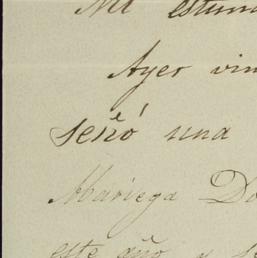 Mi estim
Ayer vin
señó una
Mariega Do
este año y se